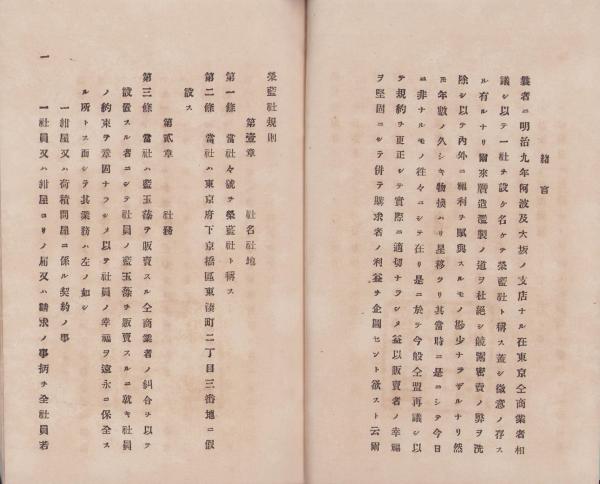 緒言
曩者ニ明治九年阿波及大坂ノ支店ナル在東京仝商業者相
議シ以テ一社ヲ設ケ名ケテ榮藍社ト稱ス蓋シ微意ノ存ス
ル有ルナリ爾來贋造濫製ノ道ヲ杜絶シ競鬻密賣ノ弊ヲ洗
除シ以テ內外ニ福利ヲ賦與スルモノ尠少ナラザルナリ然
𪜈年數ノ久シキ物換ハリ星移ヲリ其當時ニ是ニシテ今日
ニ非ナルモノ往々ニシテ在リ是ニ於テ今般仝盟再議シ以
テ規約ヲ更正シテ實際ニ適切ナラシメ益以販賣者ノ幸福
ヲ堅固ニシテ併テ購求者ノ利益ヲ企圖セント欲スト云爾
榮藍社規則
第壹章 社名社地
第一條 當社々號ヲ榮藍社ト稱ス
第二條 當社ハ東京府下京橋區東湊町二丁目三番地ニ假
設ス
第貳章 社務
第三條 當社ハ藍玉藻ヲ販賣スル仝商業者ノ糾合ヲ以テ
設置スル者ニシテ社員ノ藍玉藻ヲ販賣スルニ就キ社員
ノ約束ヲ鞏固ナラシメ以テ社員ノ幸福ヲ遠永ニ保全ス
ル所トス而シテ其業務ハ左ノ如シ
一紺屋又ハ荷積問屋ニ係ル契約ノ事
一社員又ハ紺屋ヨリノ屆又ハ請求ノ事柄ヲ全社員若
一